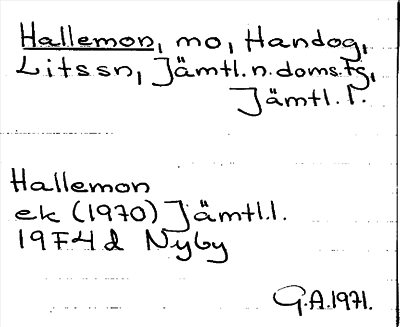 Hallemon, mo, Handog,
Litssn, Jämtl.n.doms.fg,
Jämtl.l.
Hallemon
ek (1970) Jämtl.l.
19F4d Nyby
G.A.1971.